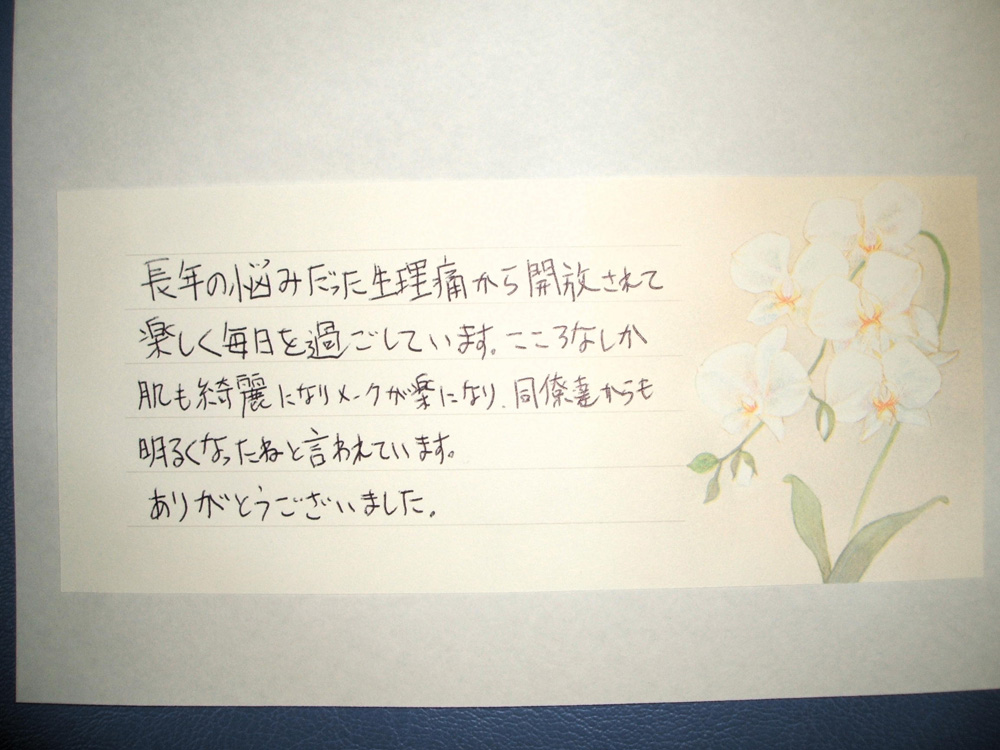 長年の悩みだった生理痛から開放されて
楽しく毎日を過ごしています。こころなしか
肌も綺麗になりメークが楽になり、同僚達からも
明るくなったねと言われています。
ありがとうございました。